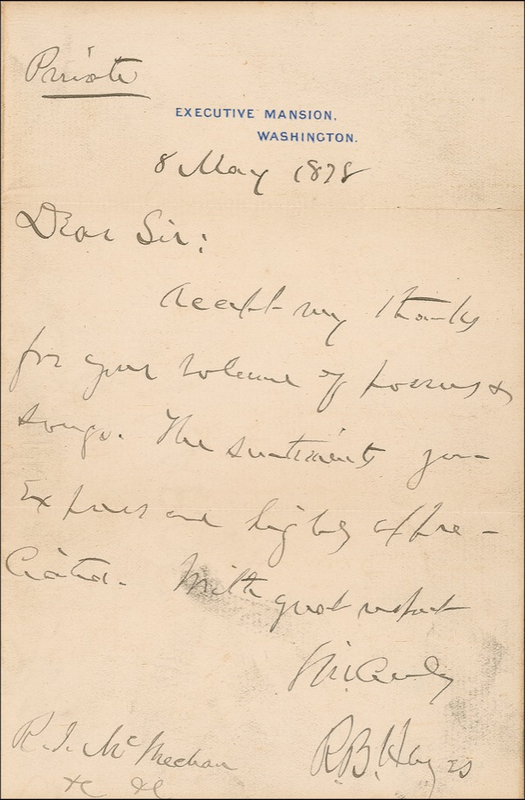 Private
EXECUTIVE MANSION,
WASHINGTON.
8 May 1878
Dear Sir:
Accept my thanks
for your volume of poems &
songs. The sentiments you
express are highly appre-
ciated. With great respect
Sincerely
R.B. Hayes
R. J. McMechan
&c &c